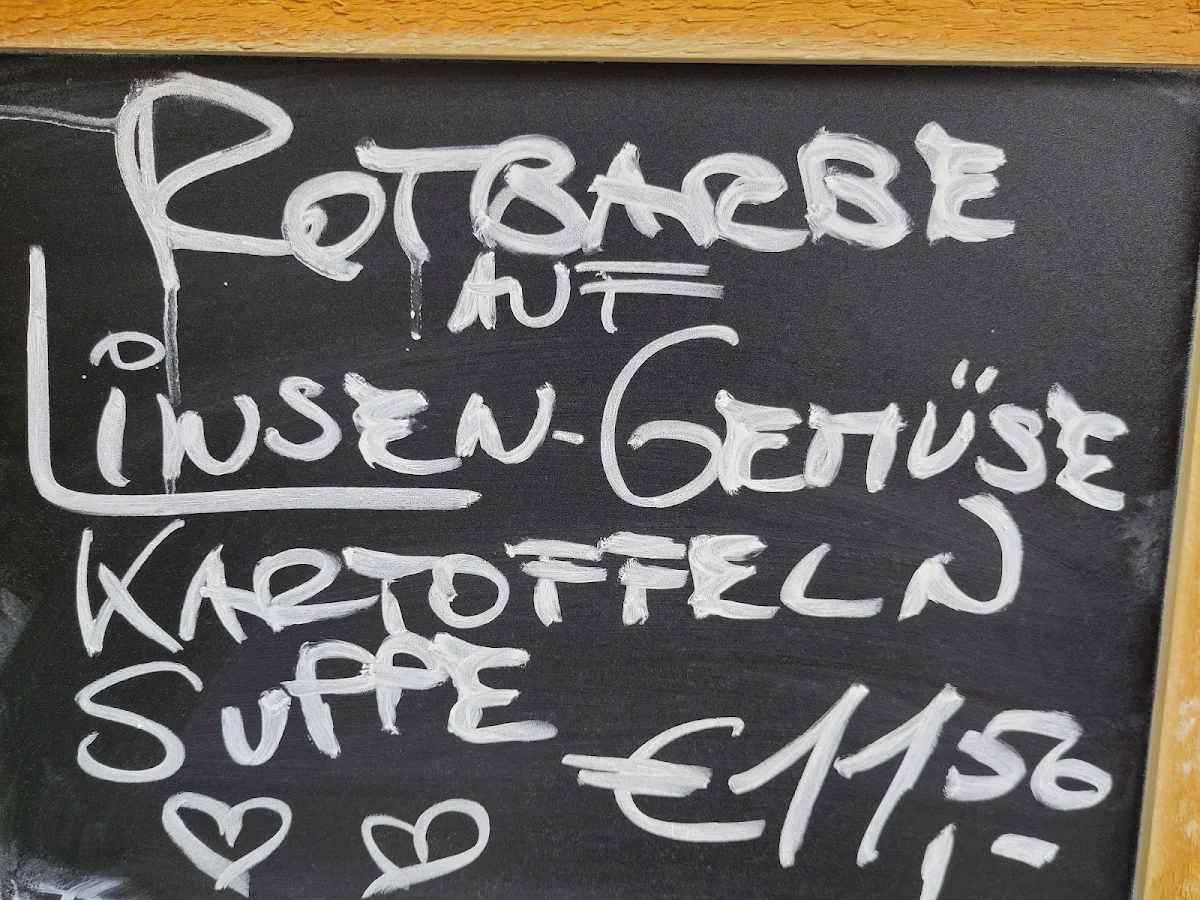 ROTBARBE
AUF
LINSEN-GEMÜSE
KARTOFFELN
SUPPE
€11,50,-